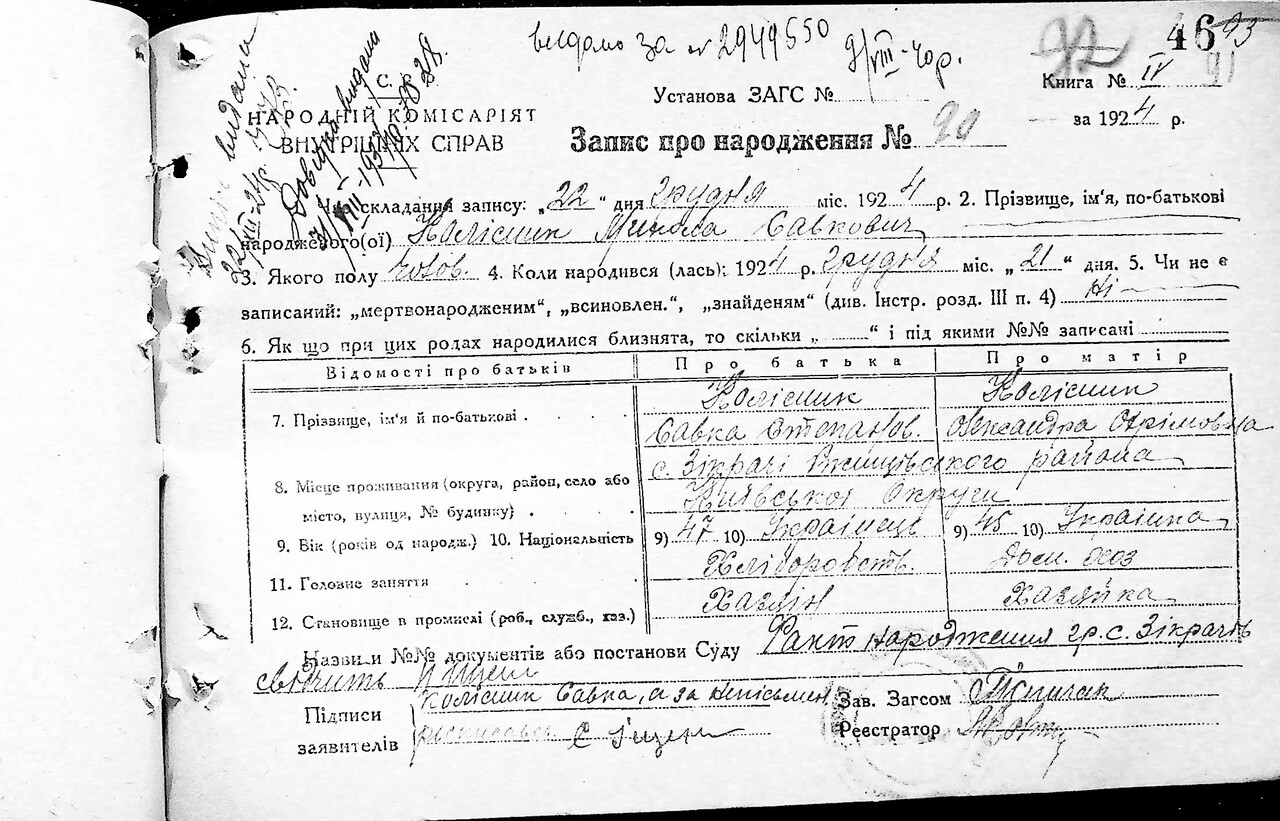 видано за № 2949550 9/VIII-40р.
46 93
92
91
С. Р.
НАРОДНІЙ КОМІСАРІЯТ
ВНУТРІШНІХ СПРАВ
видана
Довідка видана
Установа ЗАГС №
Книга № IV
за 1924 р.
Запис про народження № 90
складання запису: „22“ дня грудня міс. 1924 р. 2. Прізвище, ім'я, по-батькові
народженого(ої) Колісник Микола Савкович
3. Якого полу чолов. 4. Коли народився (лась): 1924 р. грудня міс. „21“ дня. 5. Чи не є
записаний: „мертвонародженим“, „всиновлен.“, „знайденям“ (див. Інстр. розд. III п. 4) Ні
6. Як що при цих родах народилися близнята, то скільки „ “ і під якими №№ записані
Відомості про батьків Про батька Про матір
7. Прізвище, ім'я й по-батькові Колісник Колісник
Савка Степанов. Олександра Охрімовна
8. Місце проживання (округа, район, село або с. Зікрачі Ржищівського района
місто, вулиця, № будинку) Київської Округи
9. Вік (років од народж.) 10. Національність 9) 47 10) Українець 9) 45 10) Українка
11. Головне заняття Хліборобств. Дом. хоз
12. Становище в промислі (роб., служб., хаз.) Хазяїн Хазяйка
Назви и №№ документів або постанови Суду Факт народження гр. с. Зікрачів
свідчить
Підписи Колісник Савка, а за неписьмен Зав. Загсом
заявителів росписався Реєстратор